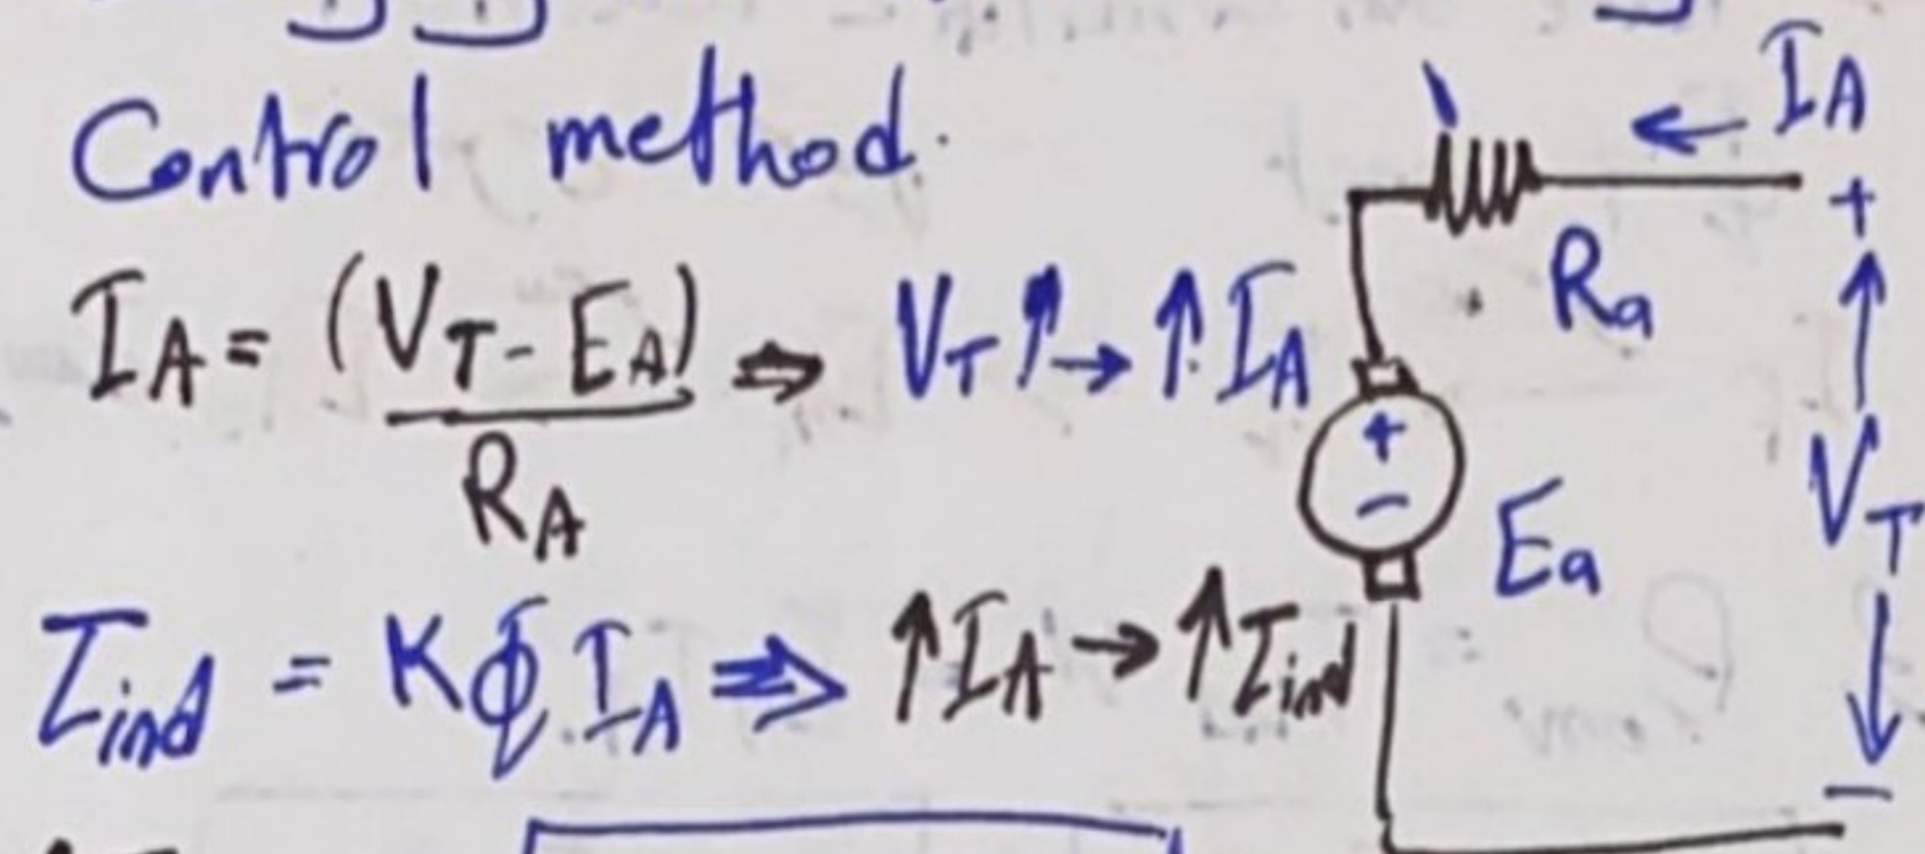 Control method.
I_A = (V_T - E_A) / R_A ⇒ V_T ↑ → ↑ I_A
τ_ind = K φ I_A ⇒ ↑ I_A → ↑ τ_ind
← I_A
R_a
+
+
-
E_a
V_T
-